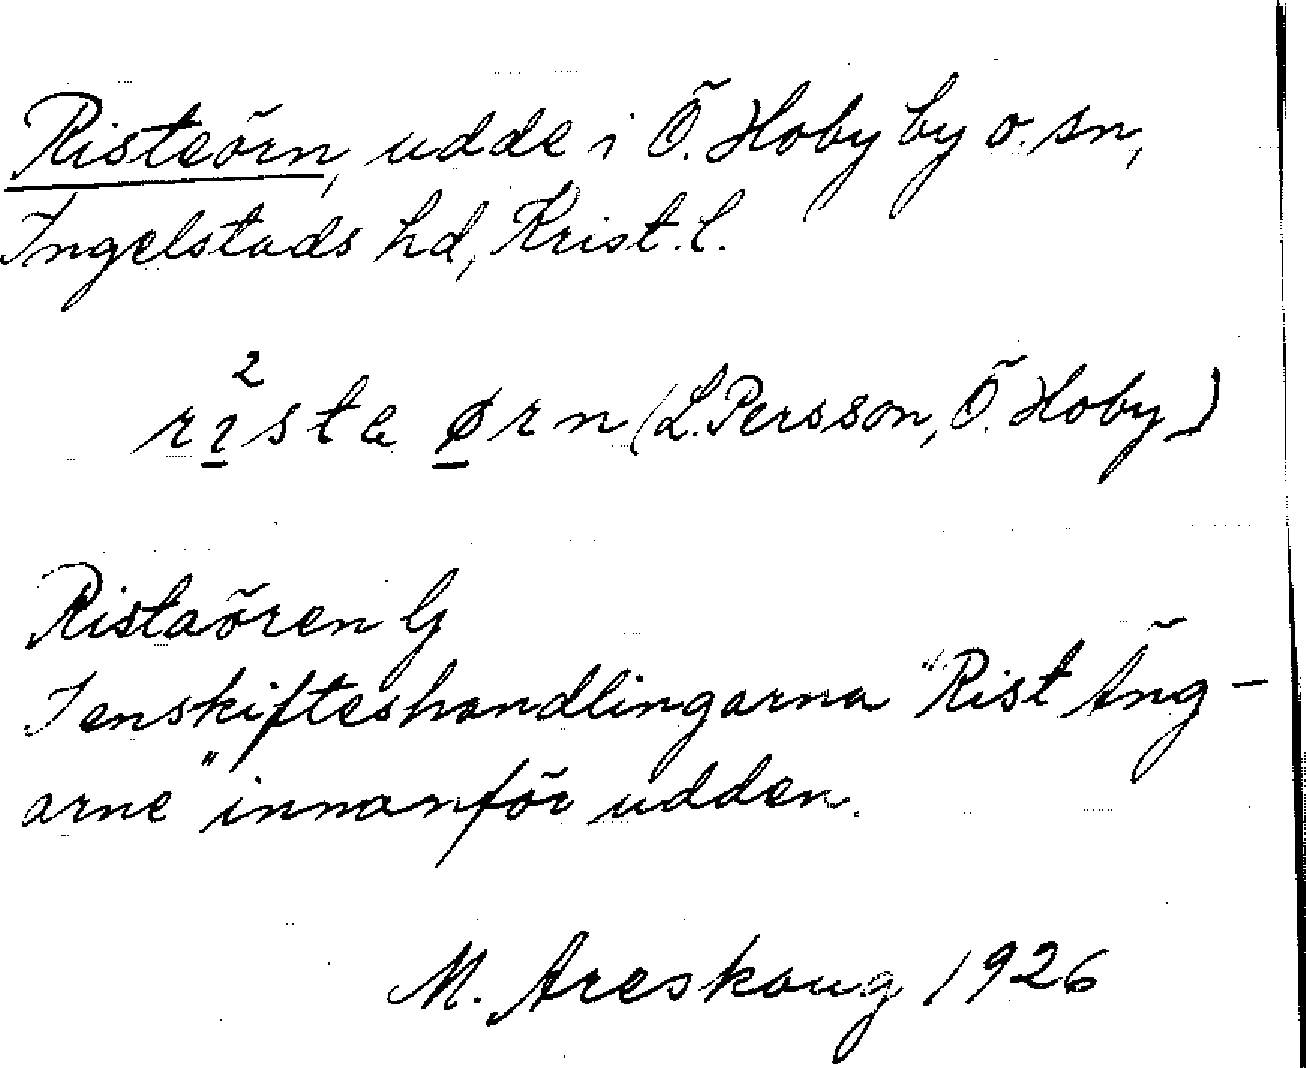 Risteörn, udde i Ö. Hoby by o. sn,
Ingelstads hd, Krist. l.
2
rıstɐ ørn (L. Persson, Ö. Hoby)
Ristaören G
I enskifteshandlingarna "Rist Äng-
arne" innanför udden.
M. Areskoug 1926